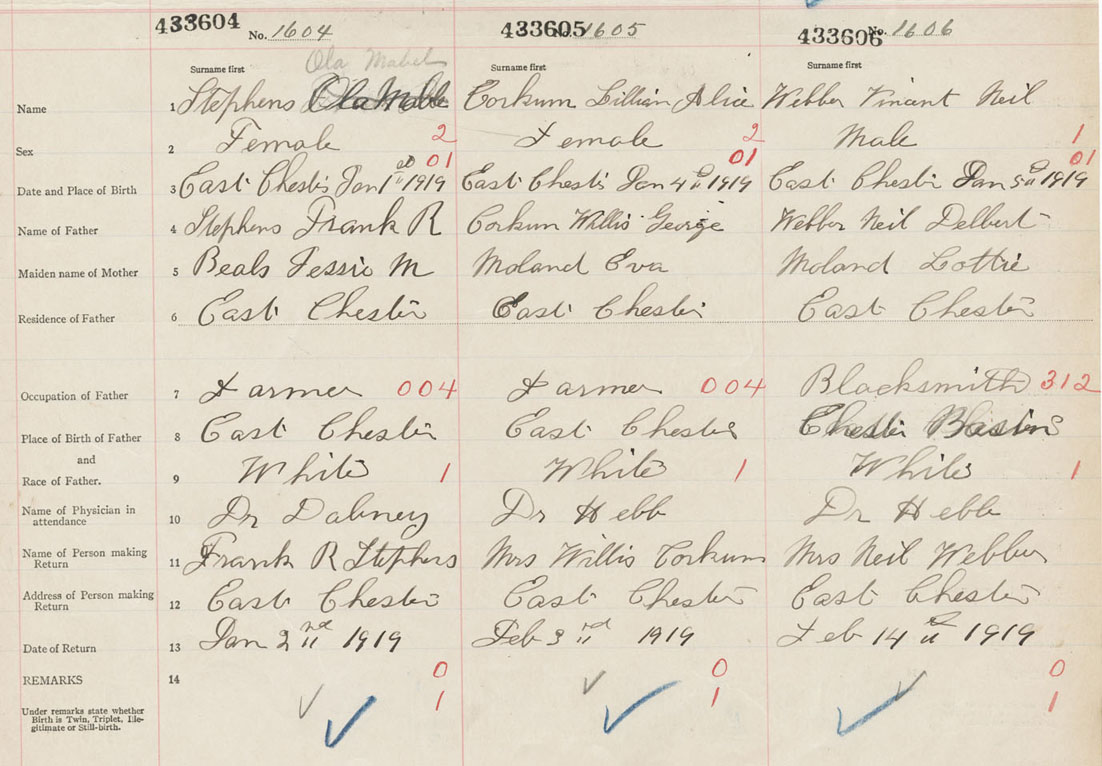 433604 No. 1604 433605 No. 1605 433606 No. 1606
Ola Mabel
Surname first Surname first Surname first
Name 1 Stephens Ola Mable Corkum Lillian Alice Webber Vinant Neil
Sex 2 Female 2 Female 2 Male 1
01 01 01
Date and Place of Birth 3 East Chester Jan 1st 1919 East Chester Jan 4th 1919 East Chester Jan 5th 1919
Name of Father 4 Stephens Frank R Corkum Willis George Webber Neil Delbert
Maiden name of Mother 5 Beals Jessie M Moland Eva Moland Lottie
Residence of Father 6 East Chester East Chester East Chester
Occupation of Father 7 Farmer 004 Farmer 004 Blacksmith 312
Place of Birth of Father 8 East Chester East Chester Chester Basin
and
Race of Father. 9 White 1 White 1 White 1
Name of Physician in
attendance 10 Dr Dabney Dr Hebb Dr Hebb
Name of Person making
Return 11 Frank R Stephens Mrs Willis Corkum Mrs Neil Webber
Address of Person making
Return 12 East Chester East Chester East Chester
Date of Return 13 Jan 2nd 1919 Feb 3rd 1919 Feb 14th 1919
REMARKS 14 0 0 0
1 1 1
Under remarks state whether
Birth is Twin, Triplet, Ille-
gitimate or Still-birth.